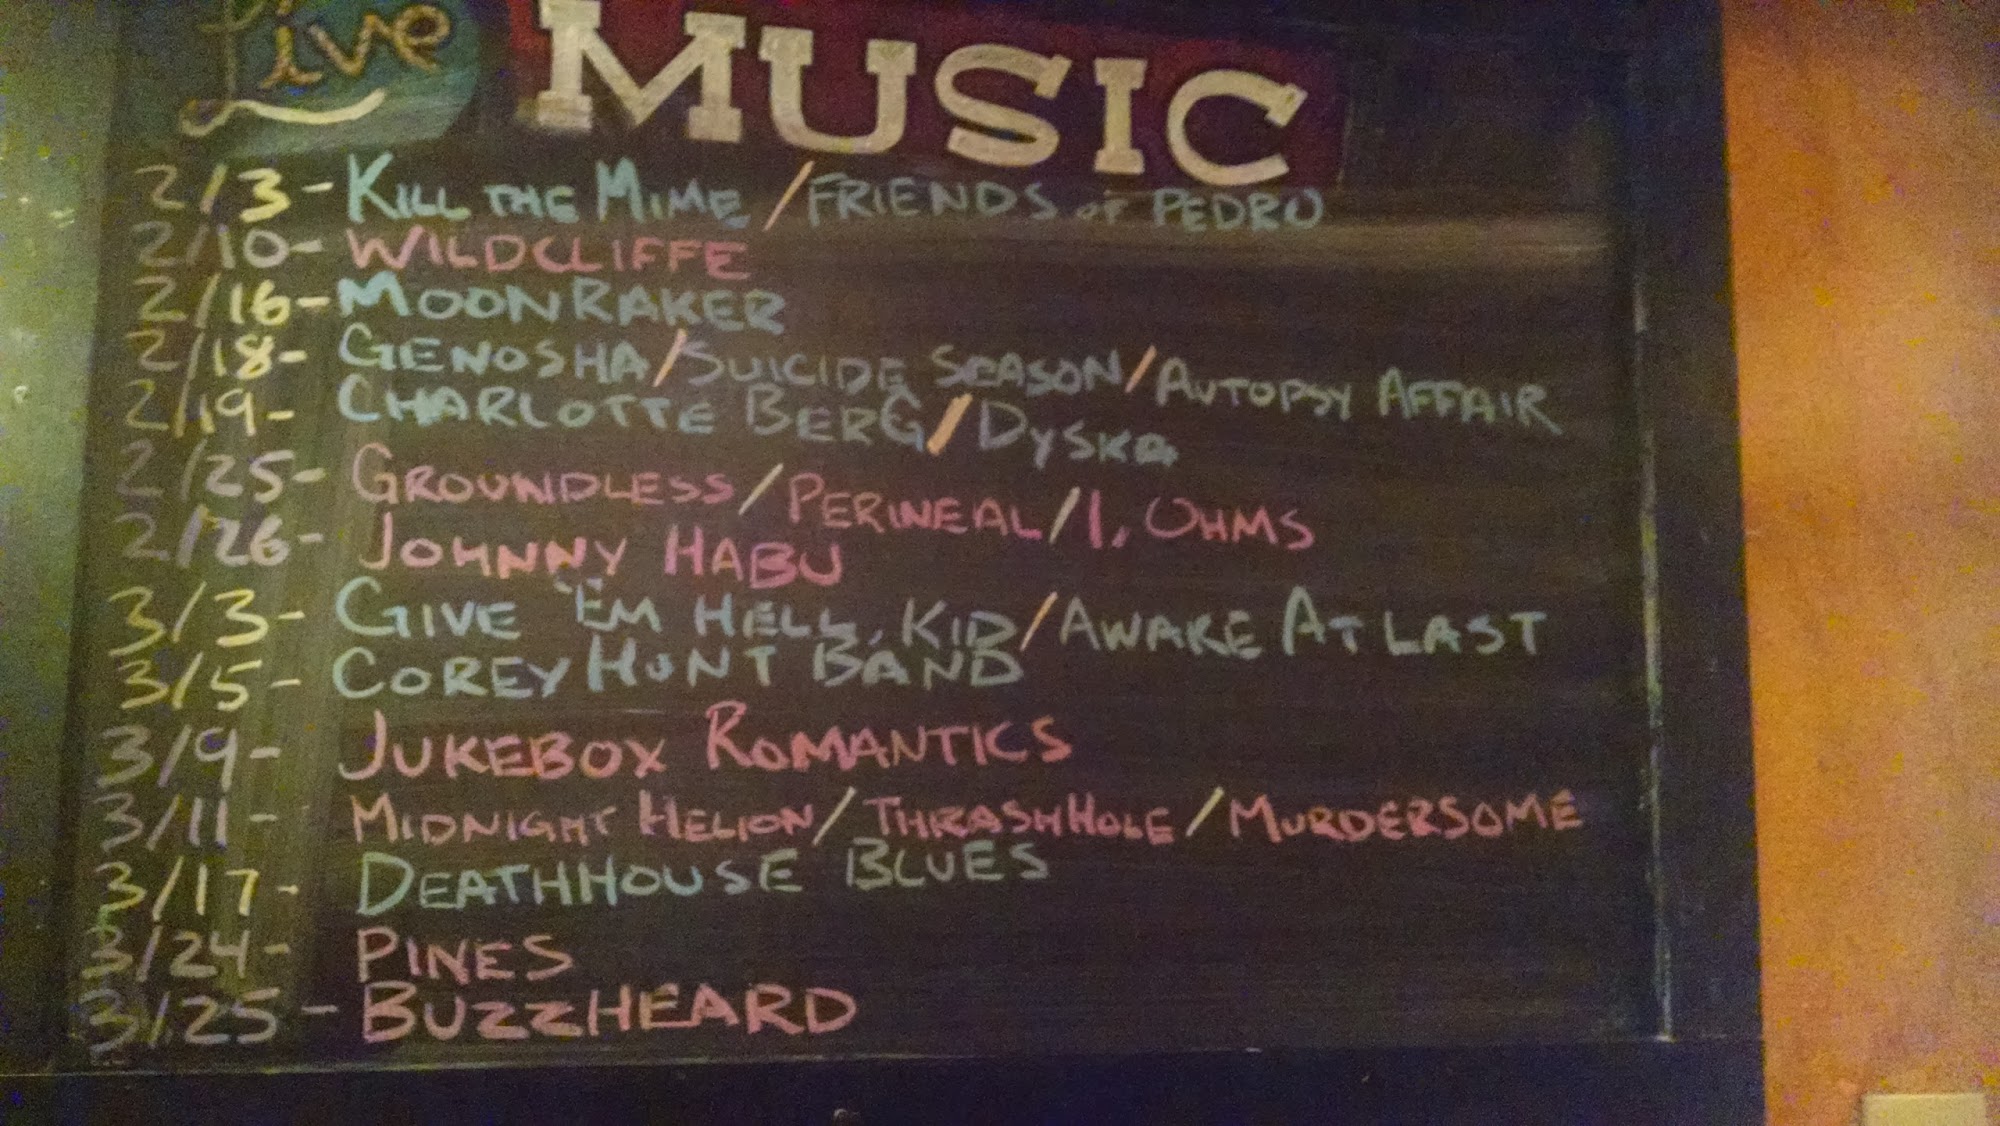 Live MUSIC
2/3 - KILL THE MIME / FRIENDS OF PEDRO
2/10 - WILDCLIFFE
2/16 - MOONRAKER
2/18 - GENOSHA / SUICIDE SEASON / AUTOPSY AFFAIR
2/19 - CHARLOTTE BERG / DYSKA
2/25 - GROUNDLESS / PERINEAL / I, OHMS
2/26 - JOHNNY HABU
3/3 - GIVE 'EM HELL, KID / AWAKE AT LAST
3/5 - COREY HUNT BAND
3/9 - JUKEBOX ROMANTICS
3/11 - MIDNIGHT HELION / THRASHHOLE / MURDERSOME
3/17 - DEATHHOUSE BLUES
3/24 - PINES
3/25 - BUZZHEARD